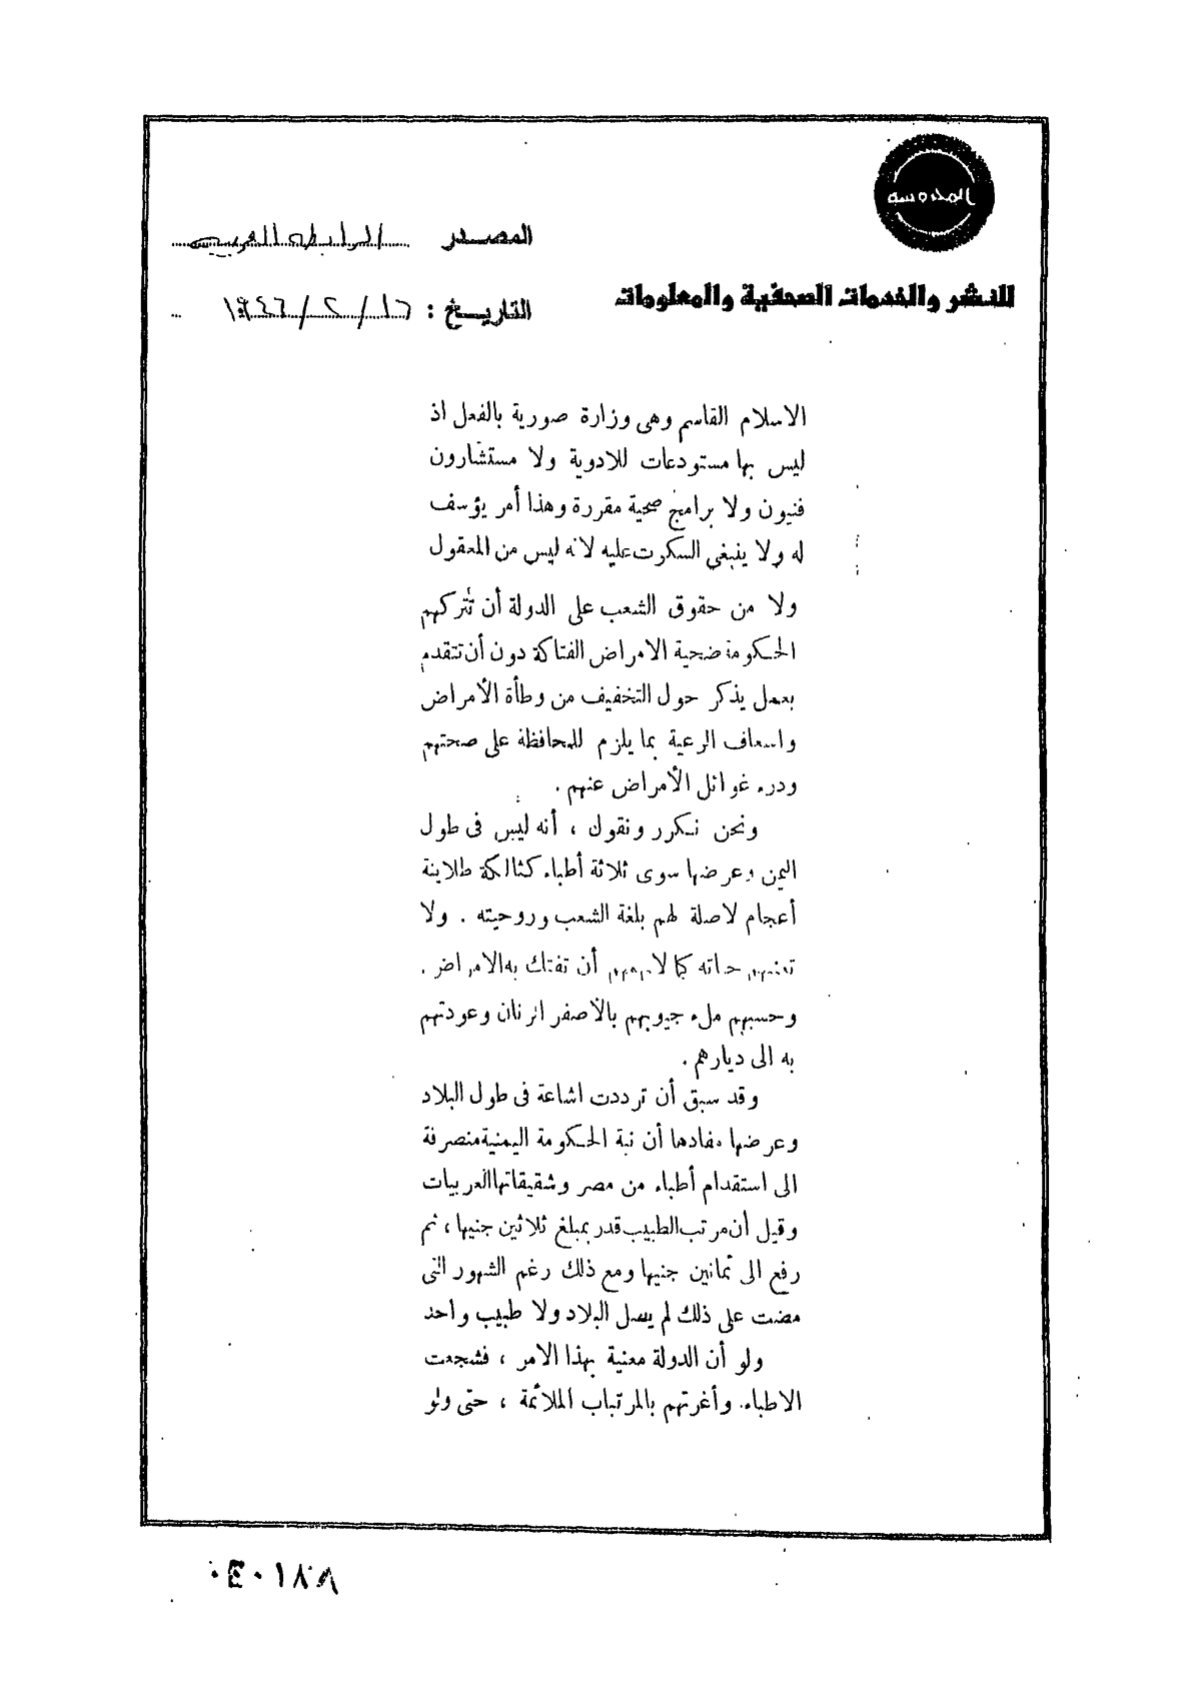 المحروسة
للنشر والخدمات الصحفية والمعلومات
المصدر الرابطة العربية
التاريخ : ١٦ / ٢ / ١٩٤٦
الاسلام القاسم وهى وزارة صورية بالفعل اذ
ليس بها مستودعات للادوية ولا مستشارون
فنيون ولا برامج صحية مقررة وهذا أمر يؤسف
له ولا ينبغي السكرت عليه لانه ليس من المعقول
ولا من حقوق الشعب على الدولة أن تتركهم
الحكومة ضحية الامراض الفتاكة دون أن تتقدم
بعمل يذكر حول التخفيف من وطأة الأمراض
واسعاف الرعية بما يلزم للمحافظة على صحتهم
ودرء غوائل الأمراض عنهم .
ونحن نكرر ونقول ، أنه ليس فى طول
اليمن وعرضها سوى ثلاثة أطباء كثالكة طلاينة
أعجام لاصلة لهم بلغة الشعب وروحيته . ولا
كما لا أن تفتك به الامراض .
وحسبهم ملء جيوبهم بالأصفر الرنان وعودتهم
به الى ديارهم .
وقد سبق أن ترددت اشاعة فى طول البلاد
وعرضها مفادها أن نية الحكومة اليمنية منصرفة
الى استقدام أطباء من مصر وشقيقاتها العربيات
وقيل أن مرتب الطبيب قدر بمبلغ ثلاثين جنيها ، ثم
رفع الى ثمانين جنيها ومع ذلك رغم الشهور التى
مضت على ذلك لم يصل البلاد ولا طبيب واحد
ولو أن الدولة معنية بهذا الامر ، فشجعت
الاطباء وأغرتهم بالمرتباب الملائمة ، حتى ولو
٠٤٠١٨٨